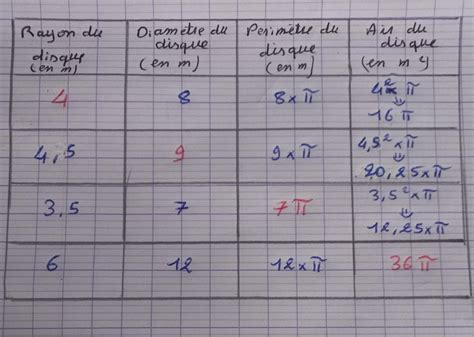 Rayon du disque (en m)
Diamètre du disque (en m)
Perimètre du disque (en m)
Air du disque (en m²)
4
8
8×π
4²×π
⇓
16π
4,5
9
9×π
4,5²×π
⇓
20,25×π
3,5
7
7π
3,5²×π
⇓
12,25×π
6
12
12×π
36π